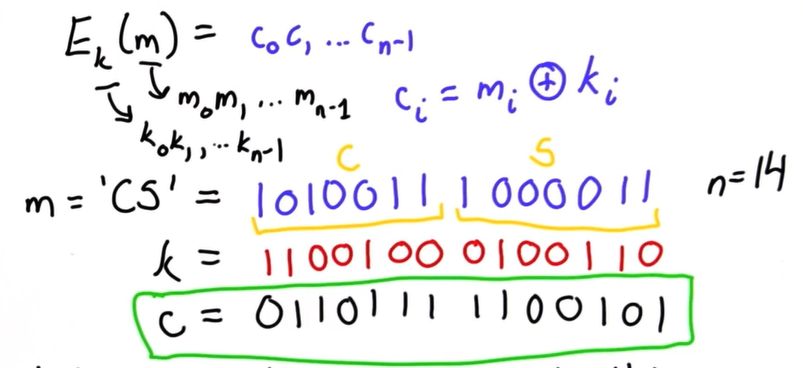 E_k(m) = c_0 c_1 ... c_{n-1}
m_0 m_1 ... m_{n-1}   c_i = m_i ⊕ k_i
k_0 k_1, ... k_{n-1}
C   S
m = 'CS' = 1010011 1000011   n=14
k = 1100100 0100110
c = 0110111 1100101